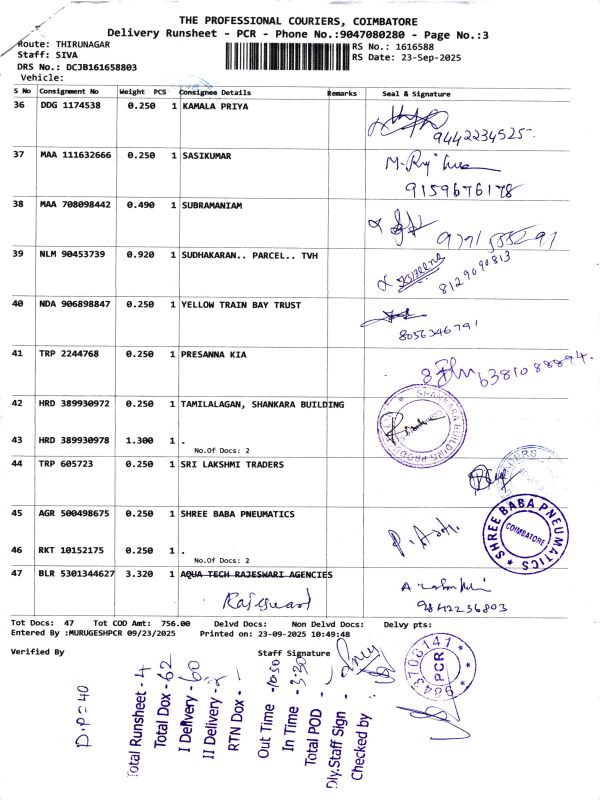 THE PROFESSIONAL COURIERS, COIMBATORE
Delivery Runsheet - PCR - Phone No.:9047080280 - Page No.:3
Route: THIRUNAGAR
Staff: SIVA
DRS No.: DCJB161658803
Vehicle:
RS No.: 1616588
RS Date: 23-Sep-2025
S No Consignment No Weight PCS Consignee Details Remarks Seal & Signature
36 DDG 1174538 0.250 1 KAMALA PRIYA
9442234525
37 MAA 111632666 0.250 1 SASIKUMAR
9159676178
38 MAA 708098442 0.490 1 SUBRAMANIAM
39 NLM 90453739 0.920 1 SUDHAKARAN.. PARCEL.. TVH
8129090813
40 NDA 906898847 0.250 1 YELLOW TRAIN BAY TRUST
8056346791
41 TRP 2244768 0.250 1 PRESANNA KIA
6381088894.
42 HRD 389930972 0.250 1 TAMILALAGAN, SHANKARA BUILDING
SHANKARA BUILDING PRODUCTS
43 HRD 389930978 1.300 1 .
No.Of Docs: 2
44 TRP 605723 0.250 1 SRI LAKSHMI TRADERS
45 AGR 500498675 0.250 1 SHREE BABA PNEUMATICS
SHREE BABA PNEUMATICS
COIMBATORE
46 RKT 10152175 0.250 1 .
No.Of Docs: 2
47 BLR 5301344627 3.320 1 AQUA TECH RAJESWARI AGENCIES
Rajeswari
9842236803
Tot Docs: 47 Tot COD Amt: 756.00 Delvd Docs: Non Delvd Docs: Delvy pts:
Entered By :MURUGESHPCR 09/23/2025 Printed on: 23-09-2025 10:49:48
Verified By Staff Signature
D.P=40
Total Runsheet - 4
Total Dox - 62
I Delivery - 60
II Delivery -
RTN Dox -
Out Time - 10:50
In Time - 3:30
Total POD -
Dly.Staff Sign -
Checked by
9843706141
PCR